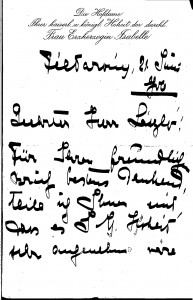 Die Hofdame
Ihrer kaiserl. u. königl. Hoheit der durchl.
Frau Erzherzogin Isabella
21 Juni
Geehrter Herr László!
Für Ihren freundlich
bestens dankend,
teile ich Ihnen mit
dass es I. K. Hoheit
sehr angenehm wäre